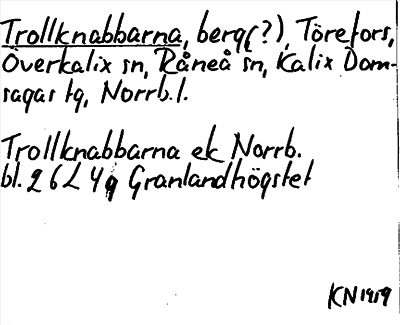 Trollknabbarna, berg(?), Törefors,
Överkalix sn, Råneå sn, Kalix Dom-
sagas tg, Norrb.l.
Trollknabbarna ek Norrb.
bl. 26L4g Granlandhögstet
KN 1959